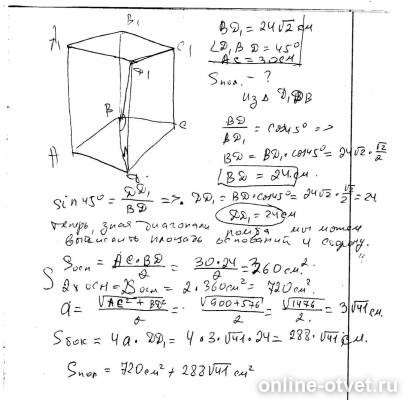 B₁
A₁
C₁
D₁
B
A
C
D
BD₁ = 24√2 см
∠D₁BD = 45°
AC = 30 см
Sпол. - ?
из Δ D₁DB
BD/BD₁ = cos45° =>
BD = BD₁·cos45° = 24√2 · √2/2
BD = 24 см.
sin45° = DD₁/BD => DD₁ = BD·cos45° = 24√2 · √2/2 = 24
DD₁ = 24 см
теперь, зная диагонали ромба мы можем
вычислить площадь оснований и сторону.
Sосн = AC·BD/2 = 30·24/2 = 360 см².
S 2х осн = 2Sосн = 2·360 см² = 720 см²
a = √(AC² + BD²)/2 = √(900+576)/2 = √1476/2 = 3√41 см.
Sбок = 4a · DD₁ = 4·3·√41·24 = 288·√41 см.
Sпол = 720 см² + 288√41 см²
online-otvet.ru